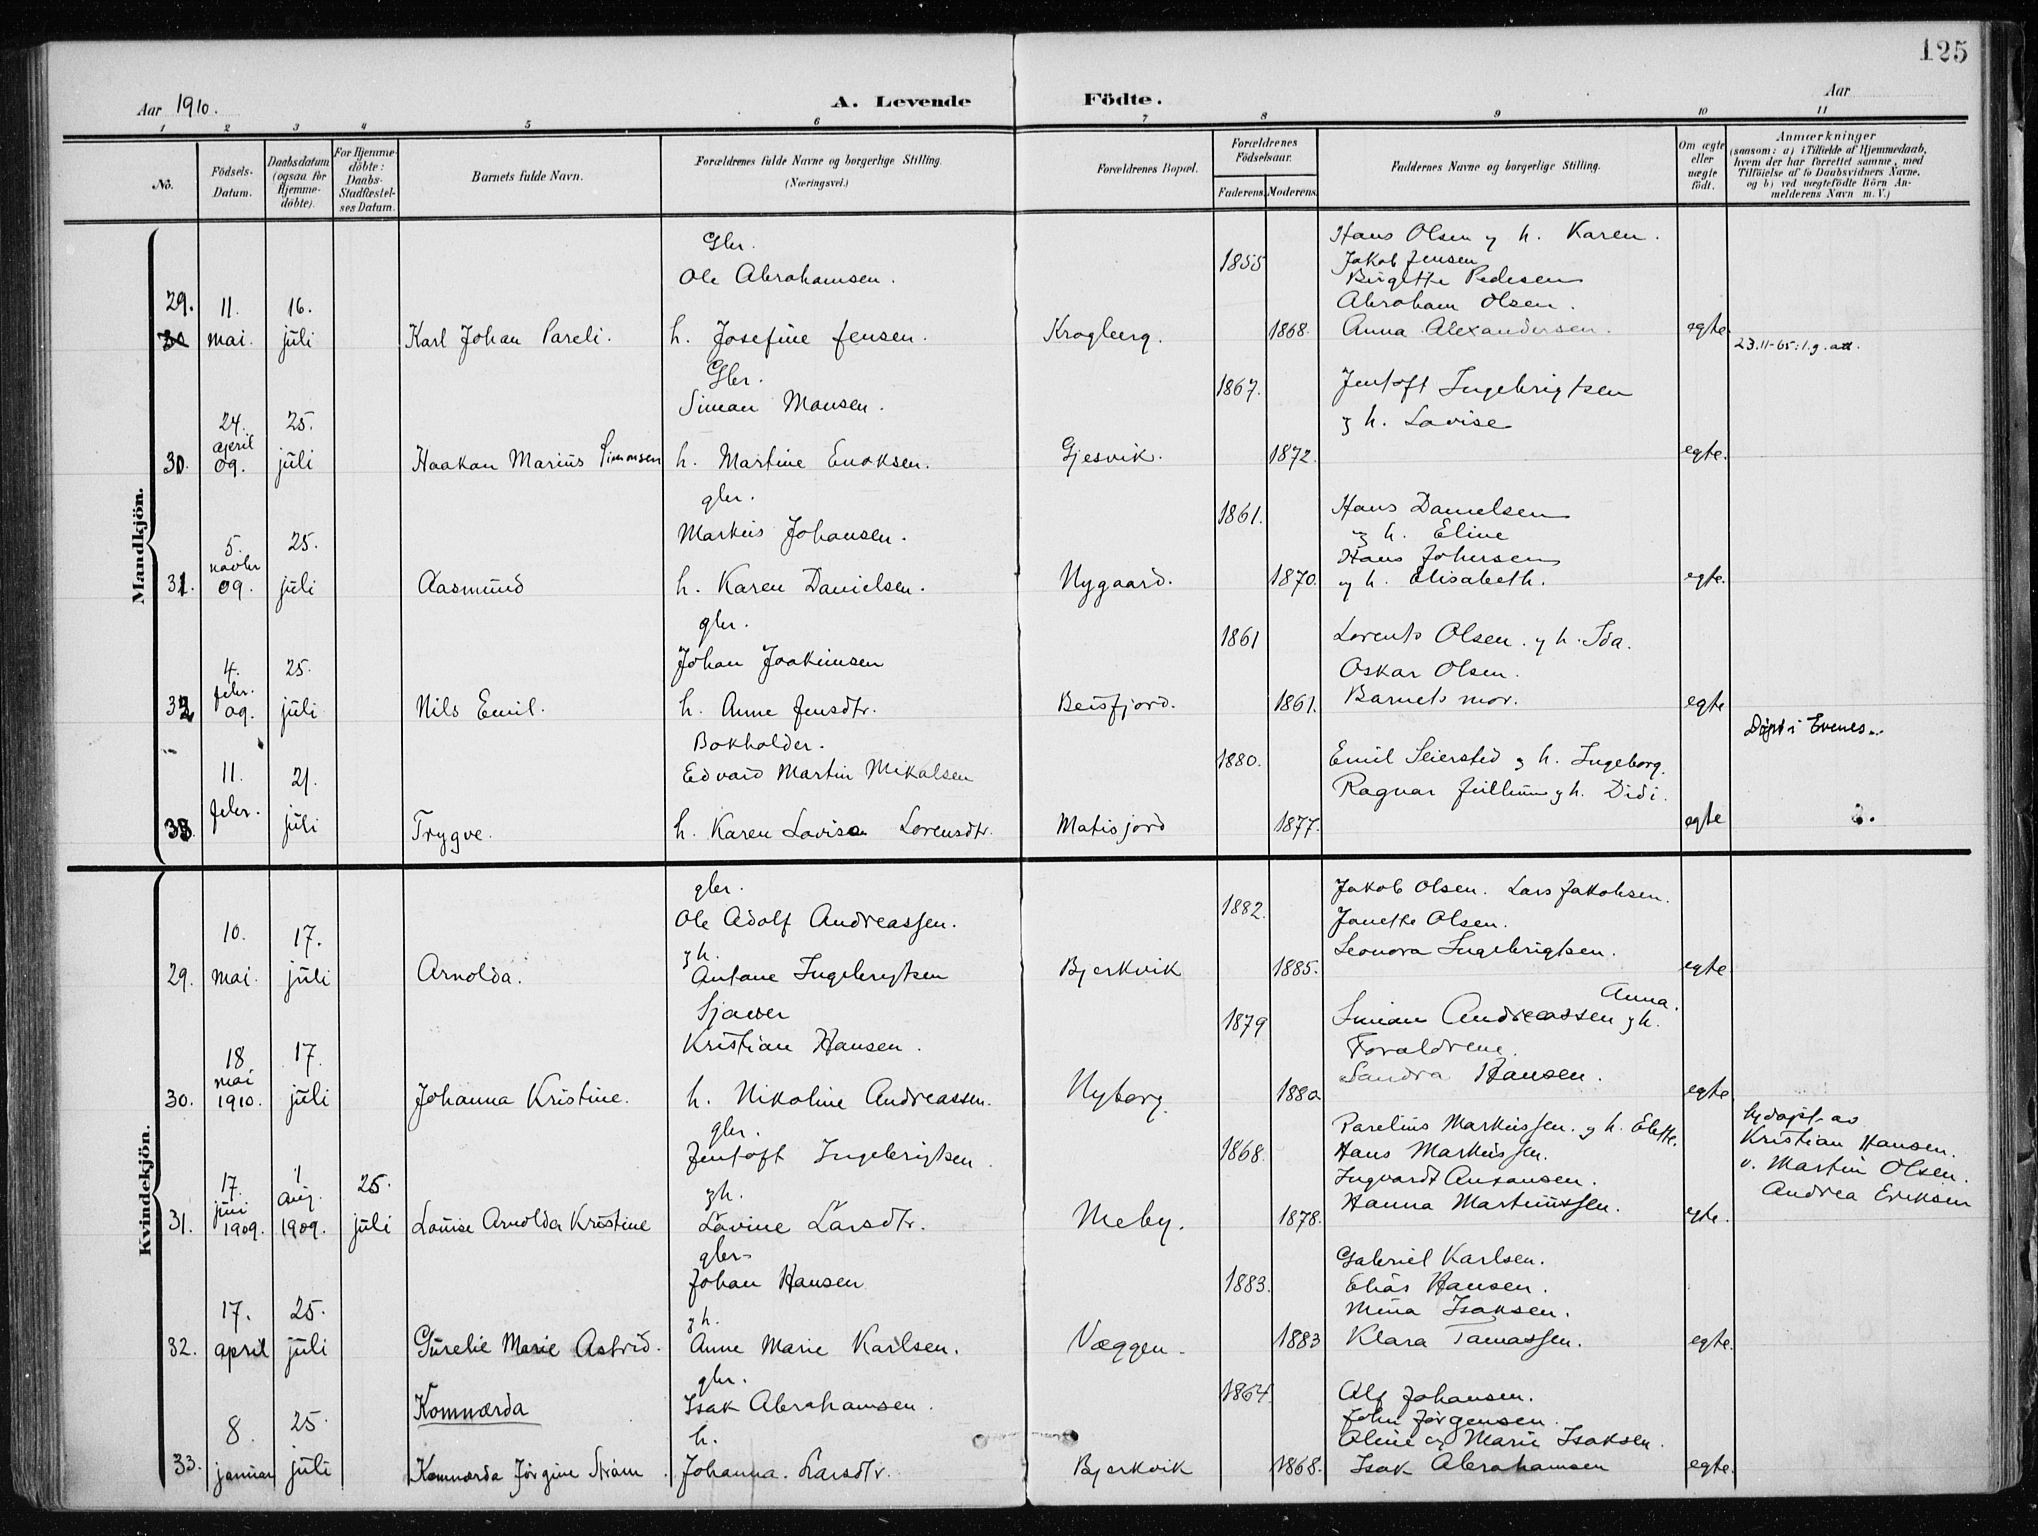 125
Aar 1910.
A. Levende Födte.
Aar
1 2 3 4 5 6 7 8 9 10 11
No.
Födsels-Datum.
Daabsdatum (ogsaa for Hjemme-döbte).
For Hjemme-döbte: Daabs-Stadfæstel-ses Datum.
Barnets fulde Navn.
Forældrenes fulde Navne og borgerlige Stilling.
(Næringsvei.)
Forældrenes Bopæl.
Forældrenes Födselsaar.
Faderens. Moderens.
Faddernes Navne og borgerlige Stilling.
Om ægte eller uægte födt.
Anmærkninger
(saasom: a) i Tilfælde af Hjemmedaab,
hvem der har forrettet samme, med
Tilföielse af to Daabsvidners Navne,
og b) ved uægtefödte Börn An-
melderens Navn m. V.)
Mandkjön.
Gbr.
Ole Abrahamsen. 1855
Hans Olsen og h. Karen.
Jakob Jensen
Birgitte Pedersen
Abraham Olsen.
29. 11. 16.
mai. juli Karl Johan Pareli. h. Josefine Jensen. Krogberg. 1868. Anna Alexandersen. egte
23.11-65: l.g. att.
Gbr.
Simon Monsen. 1867. Jentoft Ingebrigtsen
og h. Lovise
24. 25.
april
30. 09. juli Haakon Marius Simonsen h. Martine Enoksen. Gjesvik. 1872. egte.
gbr.
Markus Johansen. 1861. Hans Danielsen
og h. Eline
5. 25. Hans Johnsen
novbr
31. 09. juli Aasmund h. Karen Danielsen. Nygaard. 1870. og h. Elisabeth. egte.
gbr.
Johan Joakimsen 1861 Lorents Olsen. og h. Ida.
4. 25. Oskar Olsen.
febr.
32 09. juli Nils Emil. h. Anne Jensdtr. Beisfjord. 1861. Barnets mor. egte
Døpt i Evenes.
Bokholder.
Edvard Martin Mikalsen 1880. Emil Seiersted og h. Ingeborg.
11. 21. Ragnar og h. Didi.
febr.
33. juli Trygve. h. Karen Lovise Lorensdtr. Matisjord 1877. egte
Kvindekjön.
gbr.
Ole Adolf Andreassen. 1882. Jakob Olsen. Lars Jakobsen.
Janette Olsen.
10. 17. og h. Leonora Ingebrigtsen.
29. mai. juli Arnolda. Antone Ingebrigtsen Bjerkvik 1885. egte
Sjauer
Kristian Hansen. 1879 Simon Andreassen og h. Anna.
18 17. Foraldrene.
mai Sandra Hansen.
30. 1910. juli Johanna Kristine. h. Nikoline Andreassen. Nyborg. 1880 egte
gbr.
Jentoft Ingebrigtsen. 1868. Parelius Markussen. og h. Elette.
Hans Markussen.
17. 1 25. Ingvardt
juni aug.
31. 1909. 1909. juli Louise Arnolda Kristine og h. Lavine Larsdtr. Meby. 1878. Hanna Martinussen. egte.
hjdøpt. av
Kristian Hansen.
v. Martin Olsen.
Andrea Eriksen
gbr.
Johan Hansen 1883. Gabriel Karlsen.
Elias Hansen.
17. 25. og h. Mina Isaksen.
32. april juli Gurelie Marie Astrid. Anne Marie Karlsen. Væggen. 1883 Klara Tomassen. egte.
gbr.
Komnærda Isak Abrahamsen. 1864. Alf Johansen.
John Jørgensen.
8. 25. h. Oline og Marie Isaksen.
33. januar juli Komnærda Jørgine Strøm. Johanna Larsdtr. Bjerkvik 1868. Isak Abrahamsen egte.